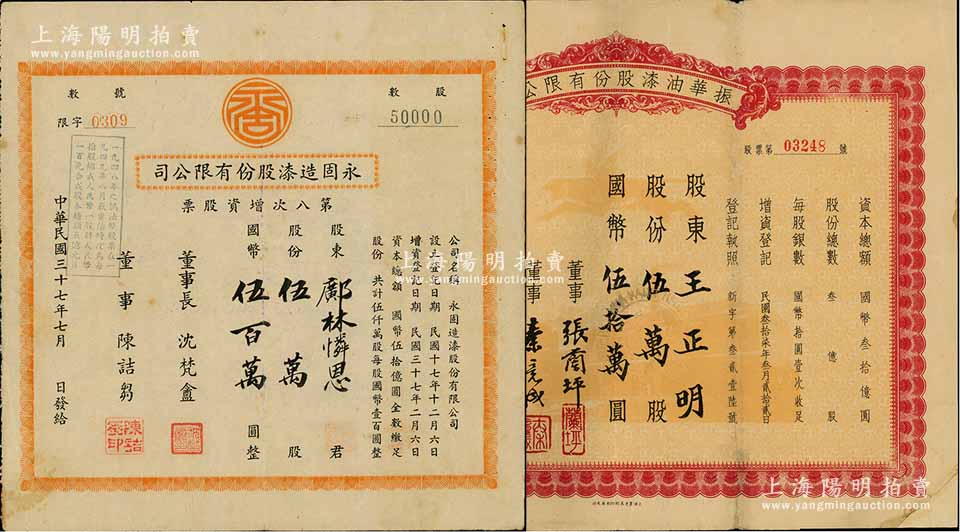 上海陽明拍賣
www.yangmingauction.com
股數
50000
號數
限字 0309
永固造漆股份有限公司
第八次增資股票
公司名稱 永固造漆股份有限公司
設立登記日期 民國十七年十二月六日
增資登記日期 民國三十七年二月六日
資本總額 國幣伍拾億圓全數繳足
股份 共計伍仟萬股每股國幣壹百圓整
股東 鄺林憐恩 君
股份 伍萬 股
國幣 伍百萬 圓整
董事長 沈梵盦
董事 陳詰芻
中華民國三十七年七月 日發給
上海陽明拍賣
www.yangmingauction.com
振華油漆股份有限公
股票第 03248 號
資本總額 國幣叁拾億圓
股份總數 叁億股
每股銀數 國幣拾圓壹次收足
增資登記 民國叁拾柒年叁月貳拾貳日
登記執照 新字第叁貳壹陸號
股東 王正明
股份 伍萬 股
國幣 伍拾萬 圓
董事 張蘭坪
董事
上海陽明拍賣
www.yangmingauction.com
上海陽明拍賣
www.yangmingauction.com